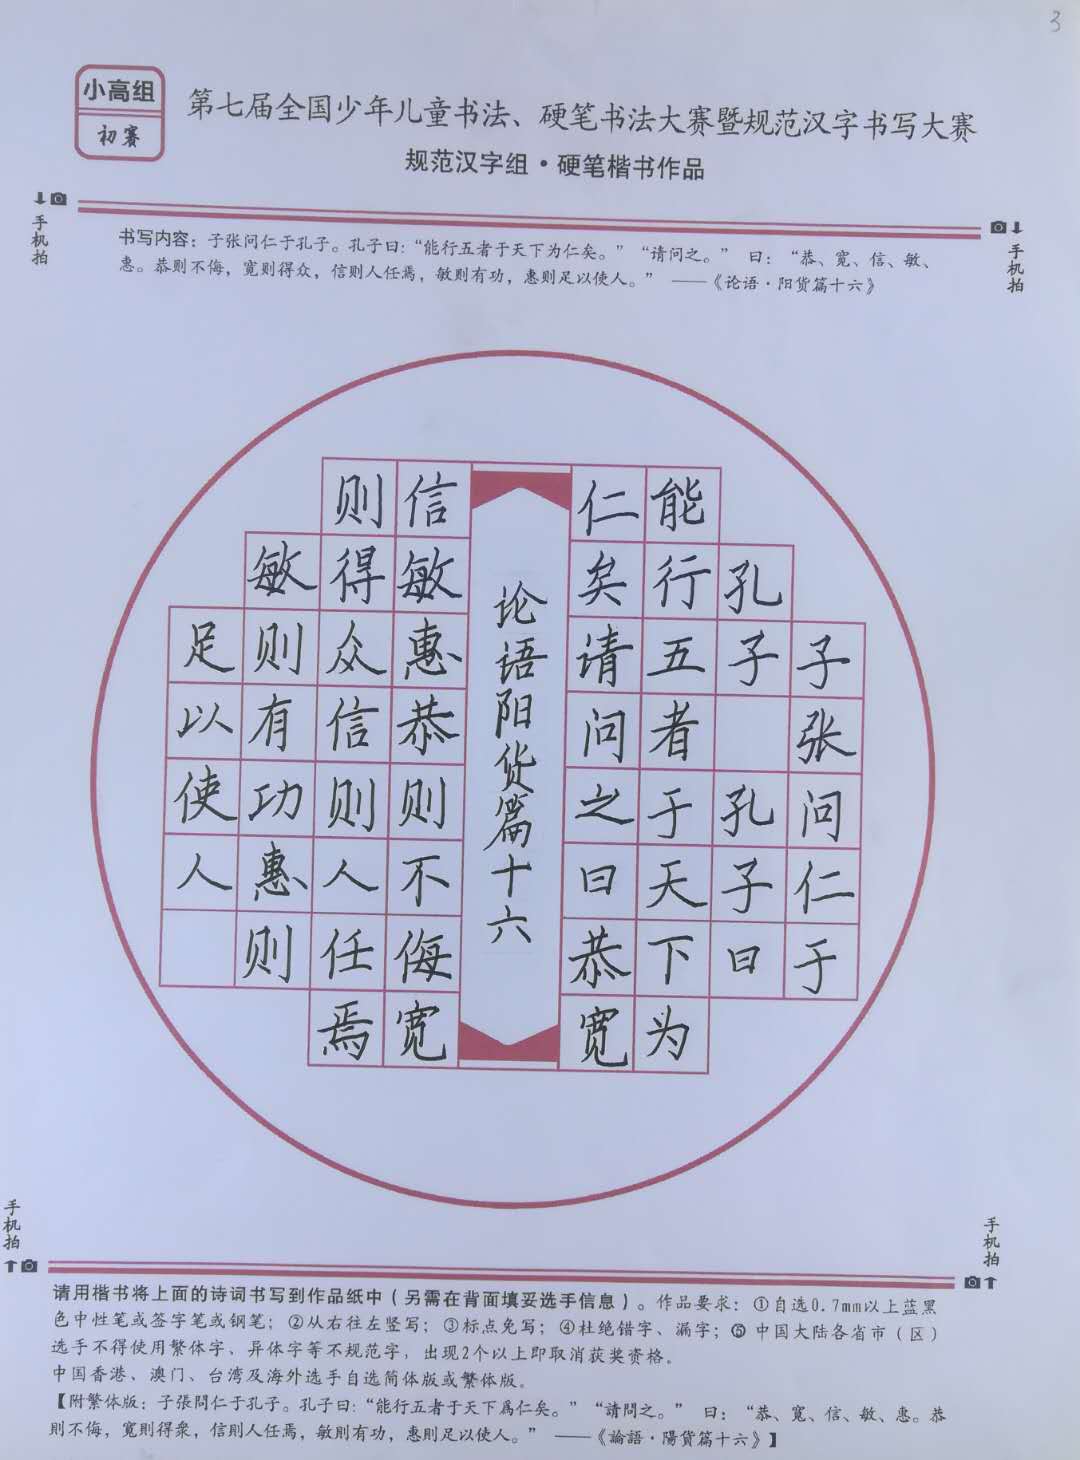 3
小高组
初赛
第七届全国少年儿童书法、硬笔书法大赛暨规范汉字书写大赛
规范汉字组·硬笔楷书作品
手机拍
手机拍
书写内容：子张问仁于孔子。孔子曰：“能行五者于天下为仁矣。”“请问之。”曰：“恭、宽、信、敏、
惠。恭则不侮，宽则得众，信则人任焉，敏则有功，惠则足以使人。”——《论语·阳货篇十六》
子张问仁于
孔子孔子曰
能行五者于天下为
仁矣请问之曰恭宽
论语阳货篇十六
信敏惠恭则不侮宽
则得众信则人任焉
敏则有功惠则
足以使人
手机拍
手机拍
请用楷书将上面的诗词书写到作品纸中（另需在背面填妥选手信息）。作品要求：①自选0.7mm以上蓝黑
色中性笔或签字笔或钢笔；②从右往左竖写；③标点免写；④杜绝错字、漏字；⑤中国大陆各省市（区）
选手不得使用繁体字、异体字等不规范字，出现2个以上即取消获奖资格。
中国香港、澳门、台湾及海外选手自选简体版或繁体版。
【附繁体版：子張問仁于孔子。孔子曰：“能行五者于天下爲仁矣。”“請問之。”曰：“恭、寬、信、敏、惠。恭
則不侮，寬則得衆，信則人任焉，敏則有功，惠則足以使人。”——《論語·陽貨篇十六》】